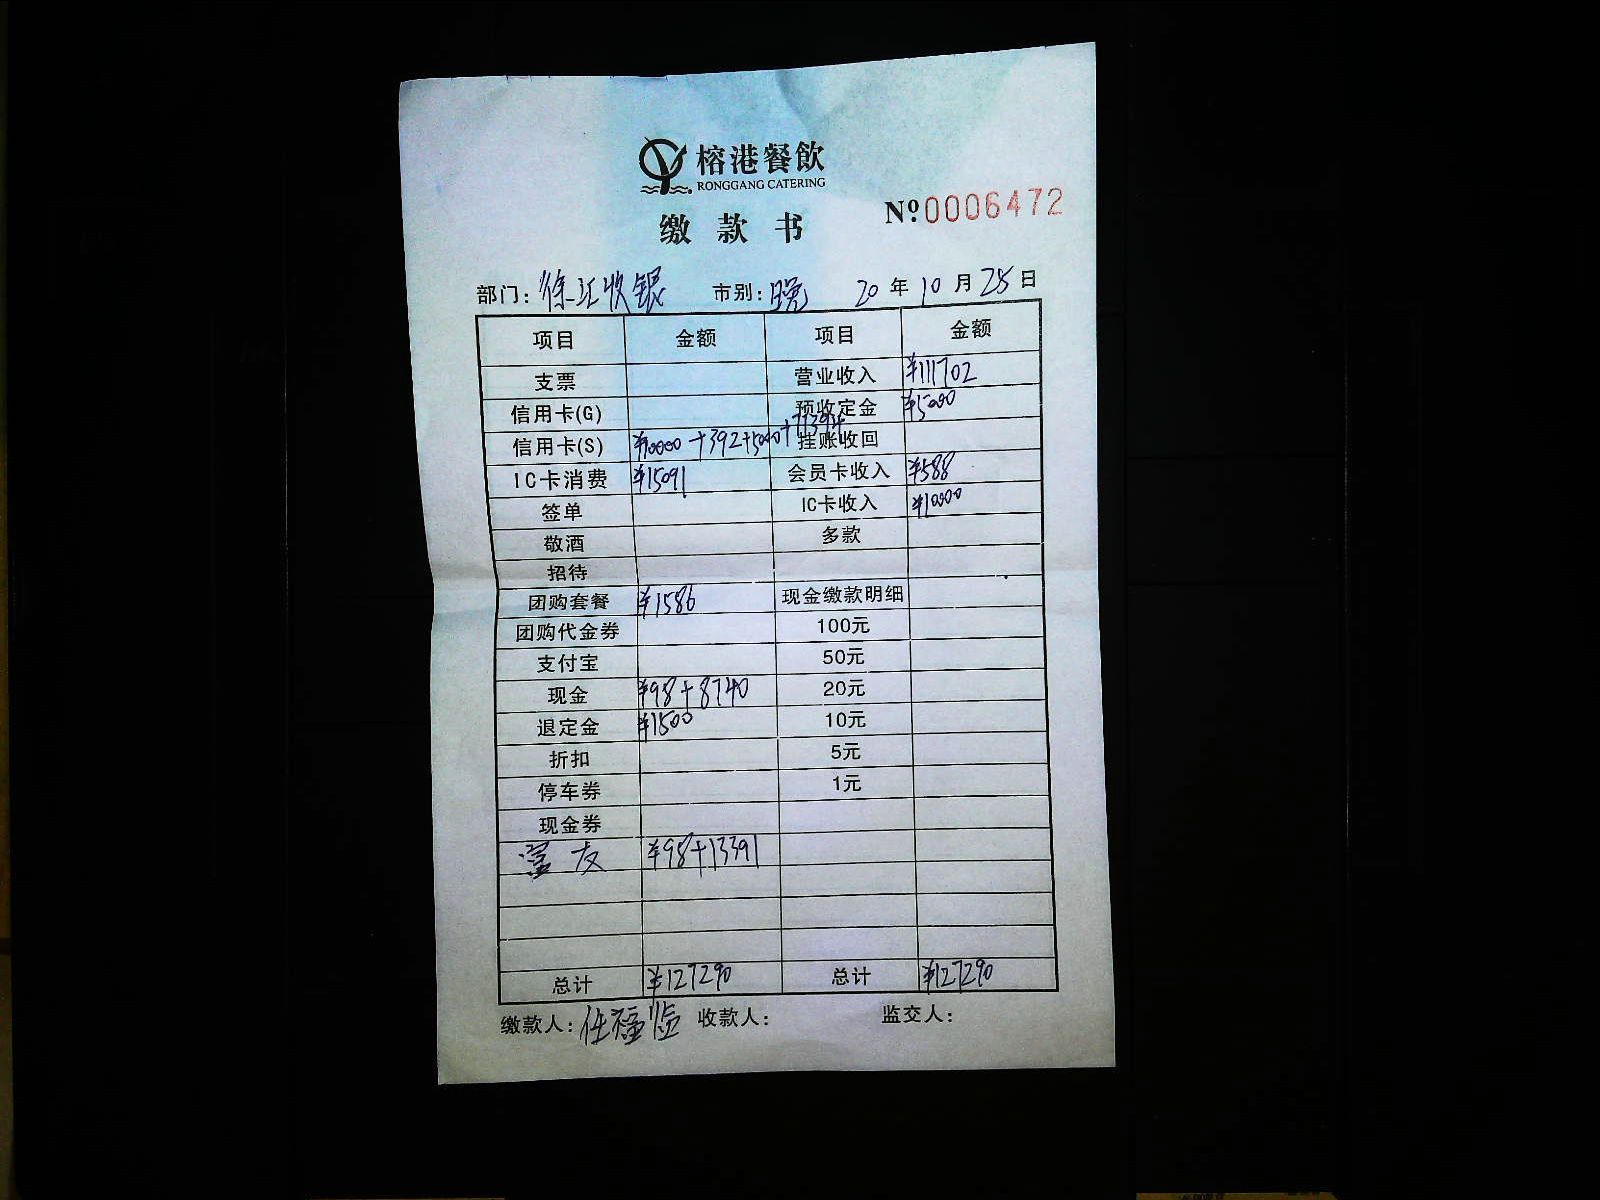 榕港餐飲
RONGGANG CATERING
缴款书
№0006472
部门：徐汇收银 市别：晚 20年10月25日
项目 金额 项目 金额
支票 营业收入 ¥111702
信用卡(G) 预收定金 ¥5000
信用卡(S) ¥10000+392+5000+71394 挂账收回
IC卡消费 ¥15091 会员卡收入 ¥588
签单 IC卡收入 ¥10000
敬酒 多款
招待
团购套餐 ¥1586 现金缴款明细
团购代金券 100元
支付宝 50元
现金 ¥98+8740 20元
退定金 ¥1500 10元
折扣 5元
停车券 1元
现金券
富友 ¥98+13391
总计 ¥127290 总计 ¥127290
缴款人： 收款人： 监交人：